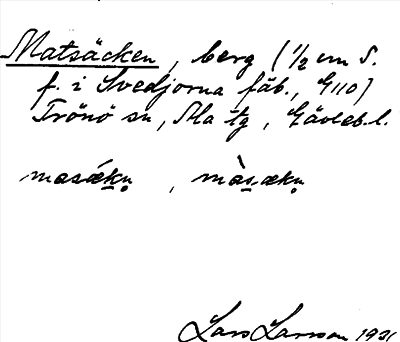 Matsäcken, berg (1/2 cm S.
f. i Svedjorna fäb., G110)
Trönö sn, Ala tg, Gävleb.l.
masǽkn̥, màsækn̥
Lars Larsson 1931